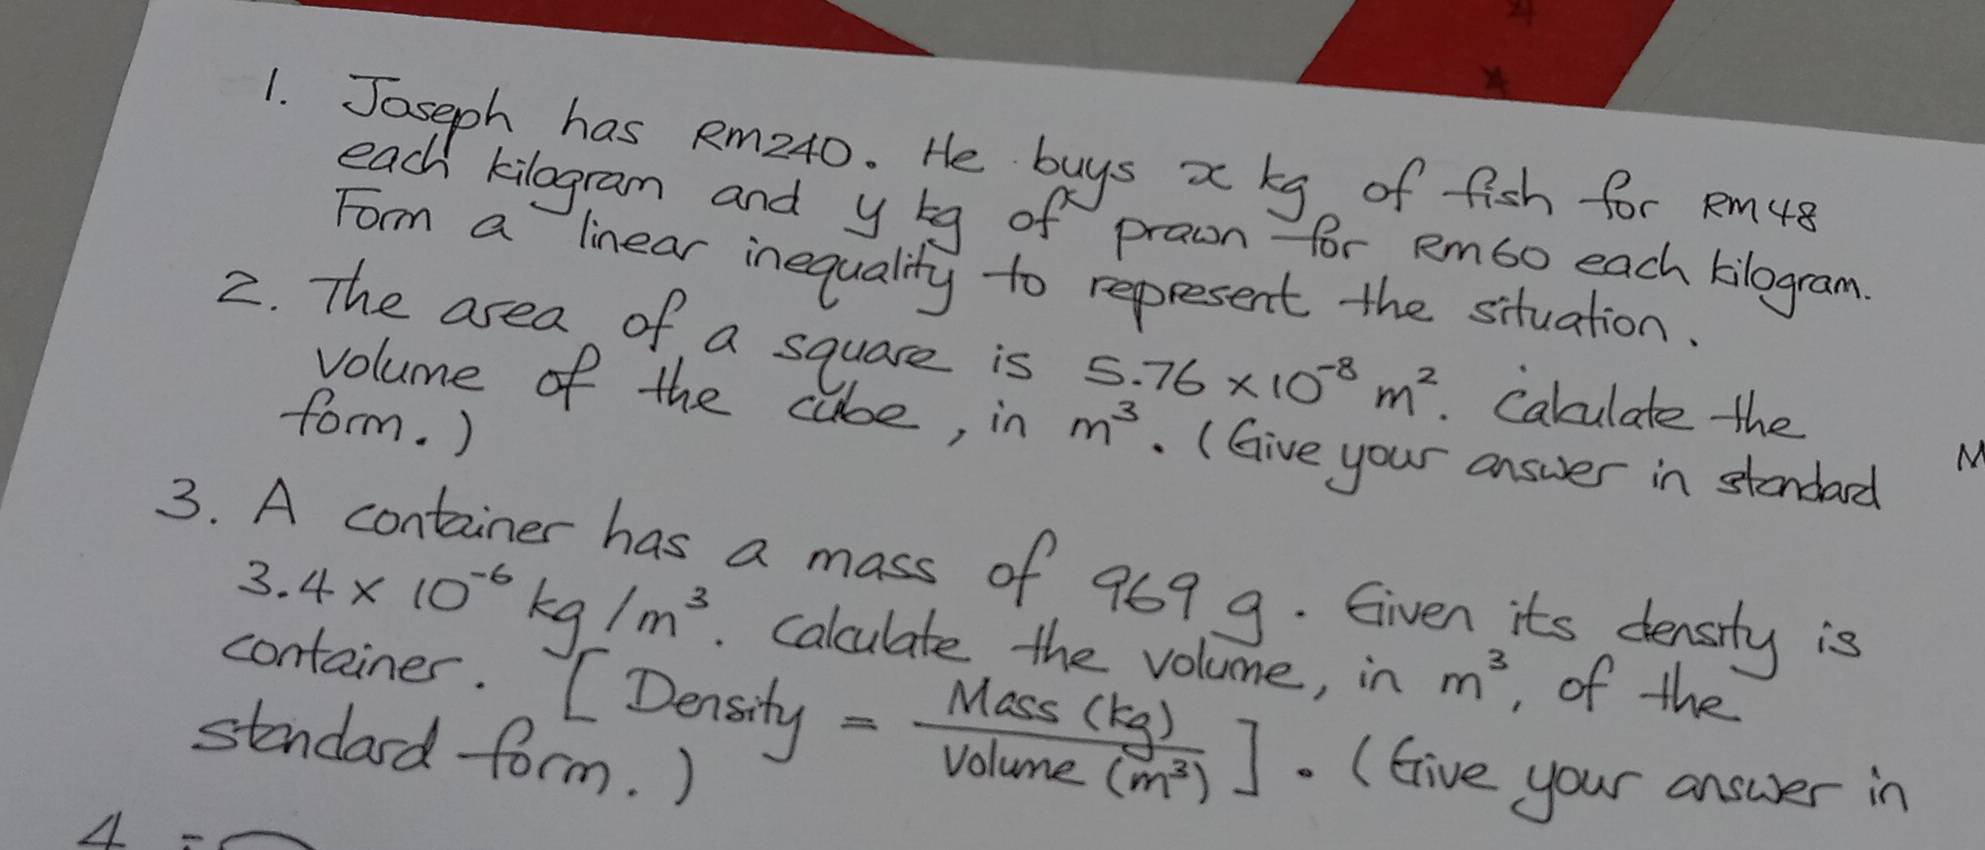 1. Joseph has RM240. He buys x kg of fish for RM48
each kilogram and y kg of prawn for RM60 each kilogram.
Form a linear inequality to represent the situation.
2. The area of a square is 5.76 × 10⁻⁸ m². Calculate the
volume of the cube, in m³. (Give your answer in standard
form.)
3. A container has a mass of 969 g. Given its density is
3.4 × 10⁻⁶ kg/m³. Calculate the volume, in m³, of the
container. [Density = Mass (kg) / Volume (m³)]. (Give your answer in
standard form.)
4